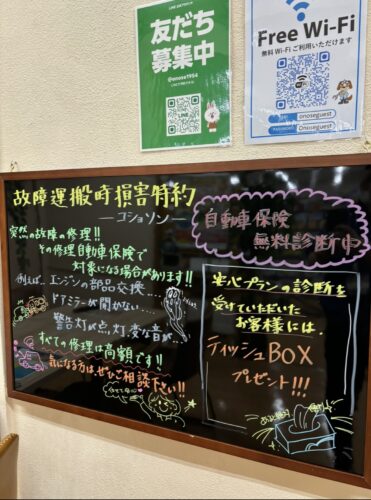 LINE公式アカウント
友だち
募集中
@onose1954
LINE
Free Wi-Fi
無料Wi-Fiご利用いただけます
onoseguest
PASSWORD
Onoseguest
故障運搬時損害特約
ーコショソンー
自動車保険
無料診断中
突然の故障の修理!!
その修理自動車保険で
対象になる場合があります!!
例えば、エンジンの部品交換....
ドアミラーが開かない....
警告灯が点灯、変な音が...
すべての修理は高額です!!
気になる方は、ぜひご相談下さい!!
安心プランの診断を
受けていただいた
お客様には、
ティッシュBOX
プレゼント!!!